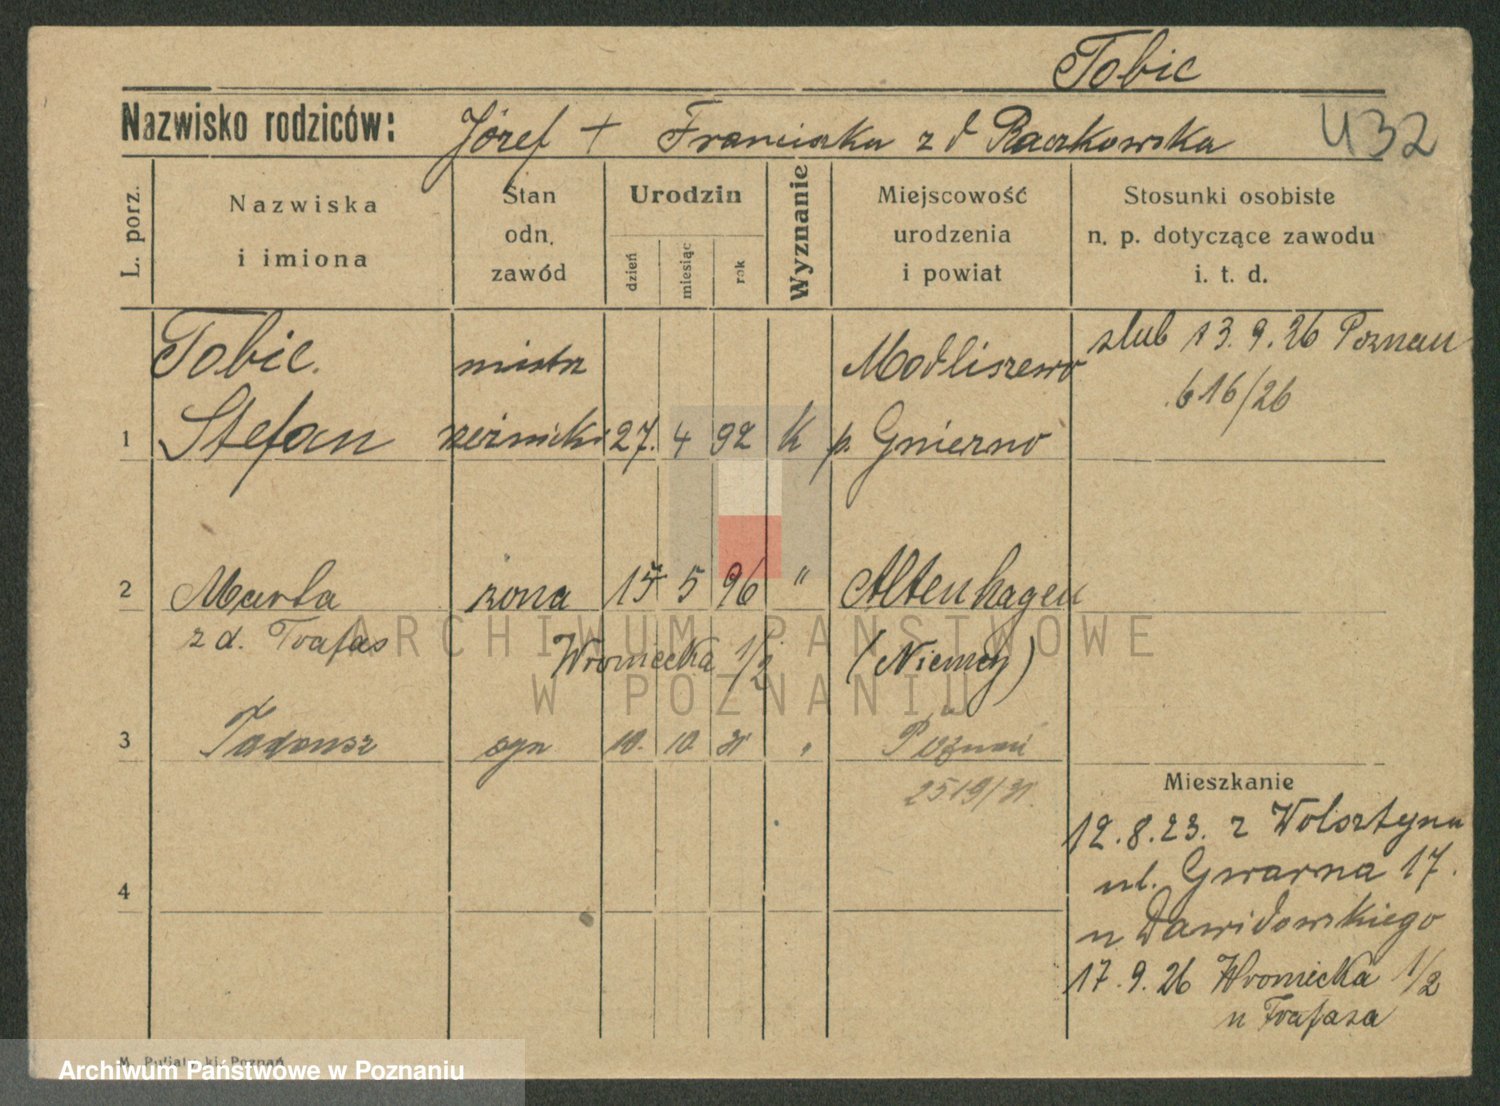 Tobic
Nazwisko rodziców: Józef + Franciszka z d Raczkowska
432
L. porz.
Nazwiska
i imiona
Stan
odn.
zawód
Urodzin
dzień
miesiąc
rok
Wyznanie
Miejscowość
urodzenia
i powiat
Stosunki osobiste
n. p. dotyczące zawodu
i. t. d.
Tobic. mistrz Modliszewo ślub 13.9.26 Poznan
616/26
1 Stefan rzeźnicki 27. 4 92 k p. Gniezno
2 Marta żona 15 5 96 " Altenhagen
z d. Trafas Wroniecka 1/2 (Niemcy)
3 Tadeusz syn 10. 10 31 " Poznań
2519/31.
Mieszkanie
12.8.23. z Wolsztyna
ul. Gwarna 17.
4
u Dawidowskiego
17.9.26 Wroniecka 1/2
u Trafasa
M. Poznań
ARCHIWUM PAŃSTWOWE
W POZNANIU
Archiwum Państwowe w Poznaniu